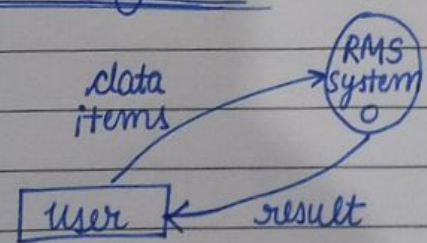 RMS
system
0
data
items
user
result